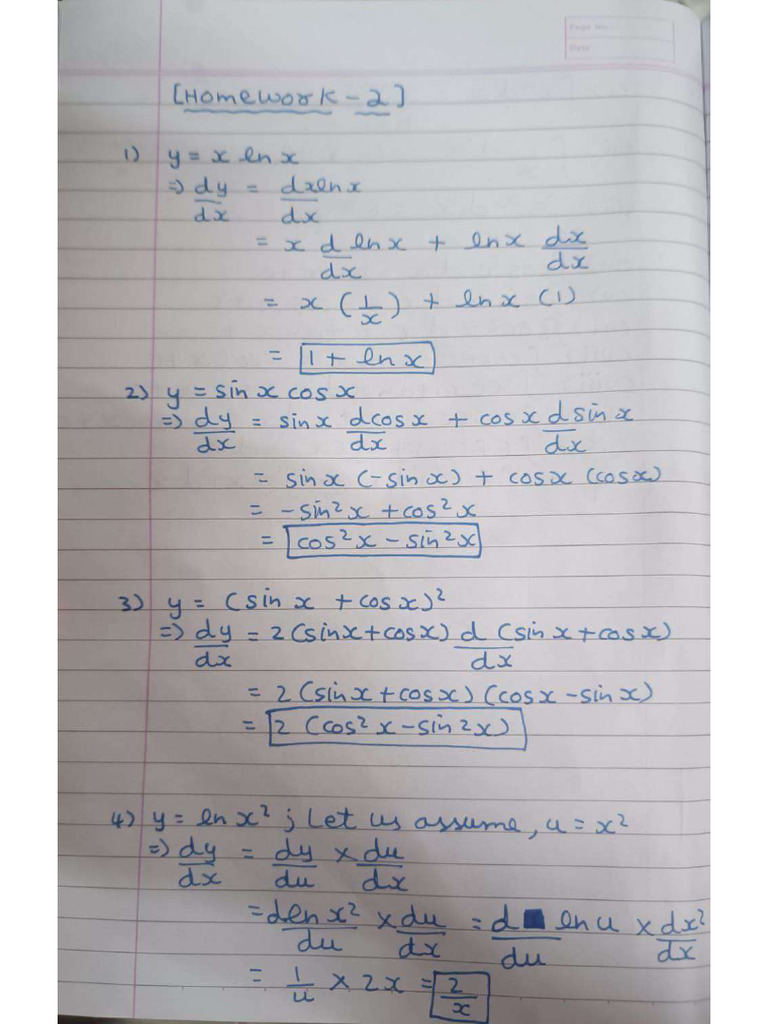 Page No.
Date
[Homework - 2]
1) y = x ln x
=> dy/dx = dxlnx/dx
= x d/dx ln x + ln x dx/dx
= x (1/x) + ln x (1)
= 1 + ln x
2) y = sin x cos x
=> dy/dx = sin x dcosx/dx + cos x dsinx/dx
= sin x (-sin x) + cosx (cosx)
= -sin²x + cos²x
= cos²x - sin²x
3) y = (sin x + cos x)²
=> dy/dx = 2(sinx + cosx) d/dx (sin x + cosx)
= 2(sinx + cosx) (cosx - sinx)
= 2 (cos²x - sin2x)
4) y = ln x² ; Let us assume, u = x²
=> dy/dx = dy/du × du/dx
= dlnx²/du × du/dx = d ln u/du × dx²/dx
= 1/u × 2x = 2/x